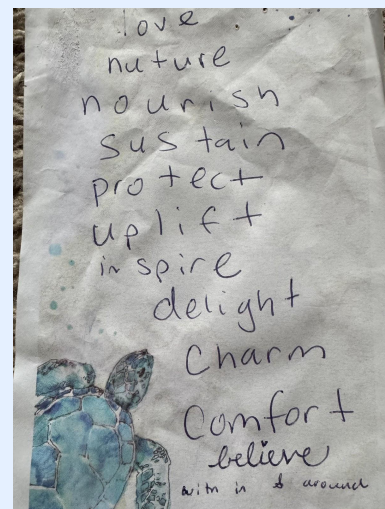 love
nuture
nourish
sustain
protect
uplift
inspire
delight
Charm
Comfort
believe
with in & around